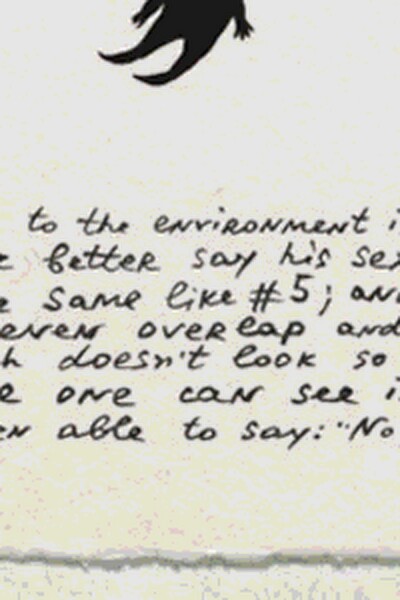 to the environment i
e better say his sex
e same like #5; and
even overlap and
h doesn't look so
e one can see i
en able to say: "No